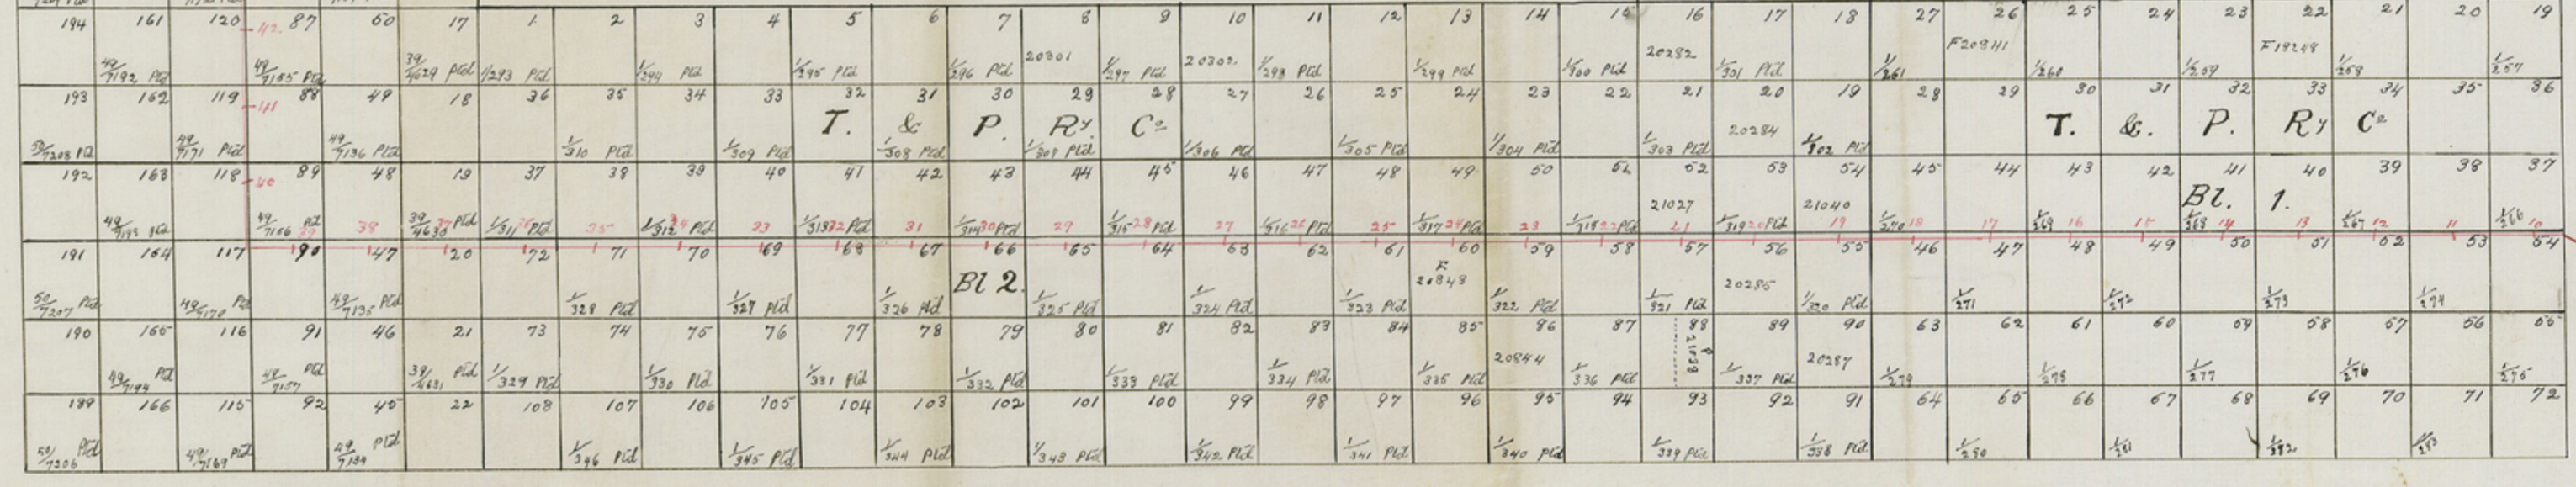 194 161 120 42 87 50 17 1 2 3 4 5 6 7 8 9 10 11 12 13 14 15 16 17 18 27 26 25 24 23 22 21 20 19
49/7192 Ptd 49/7155 Ptd 39/4629 Ptd 1/293 Ptd 1/294 Ptd 1/295 Ptd 1/296 Ptd 20301 1/297 Ptd 20302 1/298 Ptd 1/299 Ptd 1/300 Ptd 20282 1/301 Ptd 1/261 F20841 1/260 1/259 F18248 1/258 1/257
193 162 119 41 88 49 18 36 35 34 33 32 31 30 29 28 27 26 25 24 23 22 21 20 19 28 29 30 31 32 33 34 35 36
T. & P. Ry. Co T. &. P. Ry Co
50/7208 Ptd 49/7171 Ptd 49/7136 Ptd 1/310 Ptd 1/309 Ptd 1/308 Ptd 1/307 Ptd 1/306 Ptd 1/305 Ptd 1/304 Ptd 1/303 Ptd 20284 1/302 Ptd
192 163 118 40 89 48 19 37 38 39 40 41 42 43 44 45 46 47 48 49 50 51 52 53 54 45 44 43 42 41 40 39 38 37
Bl. 1.
49/7193 Ptd 49/7156 Ptd 39 38 39/4630 37 Ptd 1/311 36 Ptd 35 1/312 34 Ptd 33 1/313 32 Ptd 31 1/314 30 Ptd 29 1/315 28 Ptd 27 1/316 26 Ptd 25 1/317 24 Ptd 23 1/318 22 Ptd 21027 21 1/319 20 Ptd 21040 19 1/270 18 17 1/269 16 15 1/268 14 13 1/267 12 11 1/266 10
191 164 117 90 47 20 72 71 70 69 68 67 66 65 64 63 62 61 60 59 58 57 56 55 46 47 48 49 50 51 52 53 54
Bl 2.
50/7207 Ptd 49/7170 Ptd 49/7135 Ptd 1/328 Ptd 1/327 Ptd 1/326 Ptd 1/325 Ptd 1/324 Ptd 1/323 Ptd F 20848 1/322 Ptd 1/321 Ptd 20285 1/320 Ptd 1/271 1/272 1/273 1/274
190 165 116 91 46 21 73 74 75 76 77 78 79 80 81 82 83 84 85 86 87 88 89 90 63 62 61 60 59 58 57 56 55
49/7194 Ptd 49/7157 Ptd 39/4631 Ptd 1/329 Ptd 1/330 Ptd 1/331 Ptd 1/332 Ptd 1/333 Ptd 1/334 Ptd 1/335 Ptd 20844 1/336 Ptd 21038 1/337 Ptd 20287 1/279 1/278 1/277 1/276 1/275
189 166 115 92 45 22 108 107 106 105 104 103 102 101 100 99 98 97 96 95 94 93 92 91 64 65 66 67 68 69 70 71 72
50/7206 Ptd 49/7169 Ptd 49/7134 Ptd 1/346 Ptd 1/345 Ptd 1/344 Ptd 1/343 Ptd 1/342 Ptd 1/341 Ptd 1/340 Ptd 1/339 Ptd 1/338 Ptd 1/280 1/281 1/282 1/283